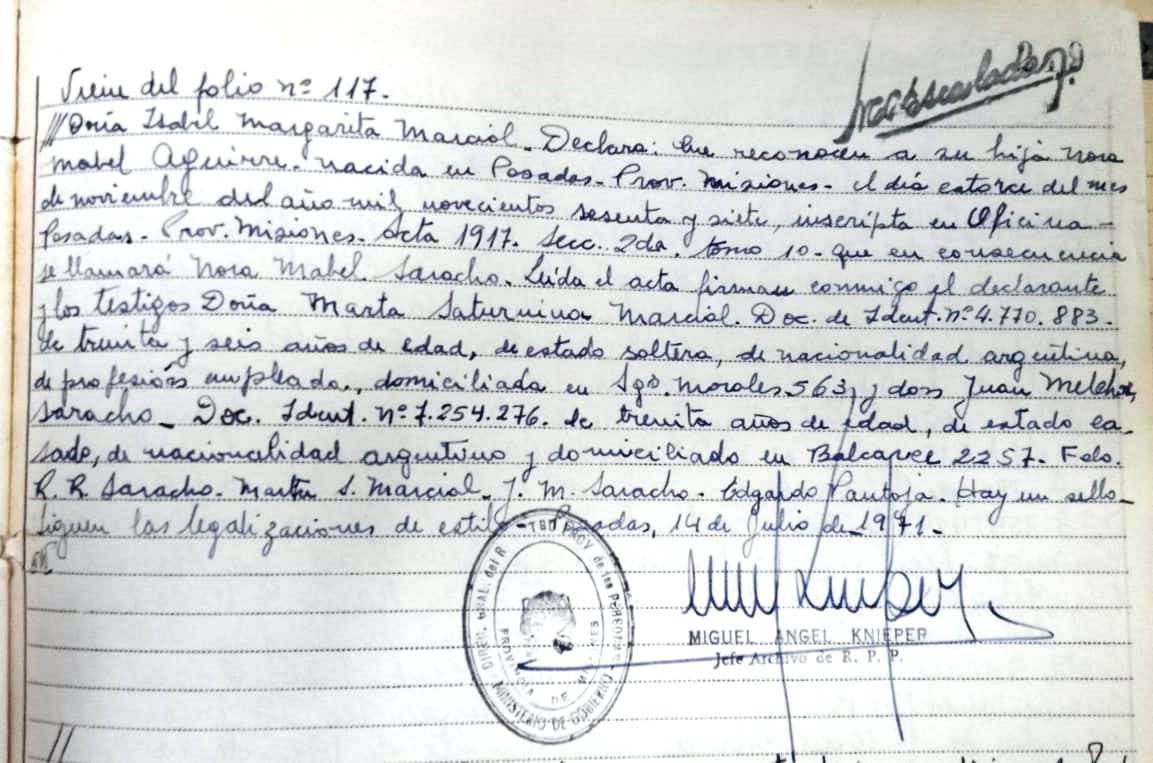 Viene del folio nº 117.
///Doña Isabel Margarita Marcial. Declara: Que reconocen a su hija Nora
Mabel Aguirre. nacida en Posadas-Prov. Misiones- el día catorce del mes
de noviembre del año mil novecientos sesenta y siete, inscripta en Oficina-
Posadas- Prov. Misiones. Acta 1917. Secc. 2da. tomo 10- que en consecuencia
se llamará Nora Mabel Saracho. Leída el acta firman conmigo el declarante
y los testigos Doña Marta Saturnina Marcial. Doc. de Ident. nº 4.770.883.
de treinta y seis años de edad, de estado soltera, de nacionalidad argentina,
de profesión empleada, domiciliada en Sgto. Morales 563 y don Juan Melchor,
Saracho_ Doc. Ident. Nº 7.254.276. de treinta años de edad, de estado ca-
sado, de nacionalidad argentino y domiciliado en Balcarce 2257- Fdo.
R. R. Saracho. Marta S. Marcial_ J. M. Saracho. Edgardo Pantoja. Hay un sello_
Siguen las legalizaciones de estilo- Posadas, 14 de Julio de 1971.-
DIREC. GRAL. del R TRO PROV. de las PERSONAS
PROVINCIA DE MISIONES
MINISTERIO DE GOBIERNO
MIGUEL ANGEL KNIEPER
Jefe Archivo de R. P. P.
//